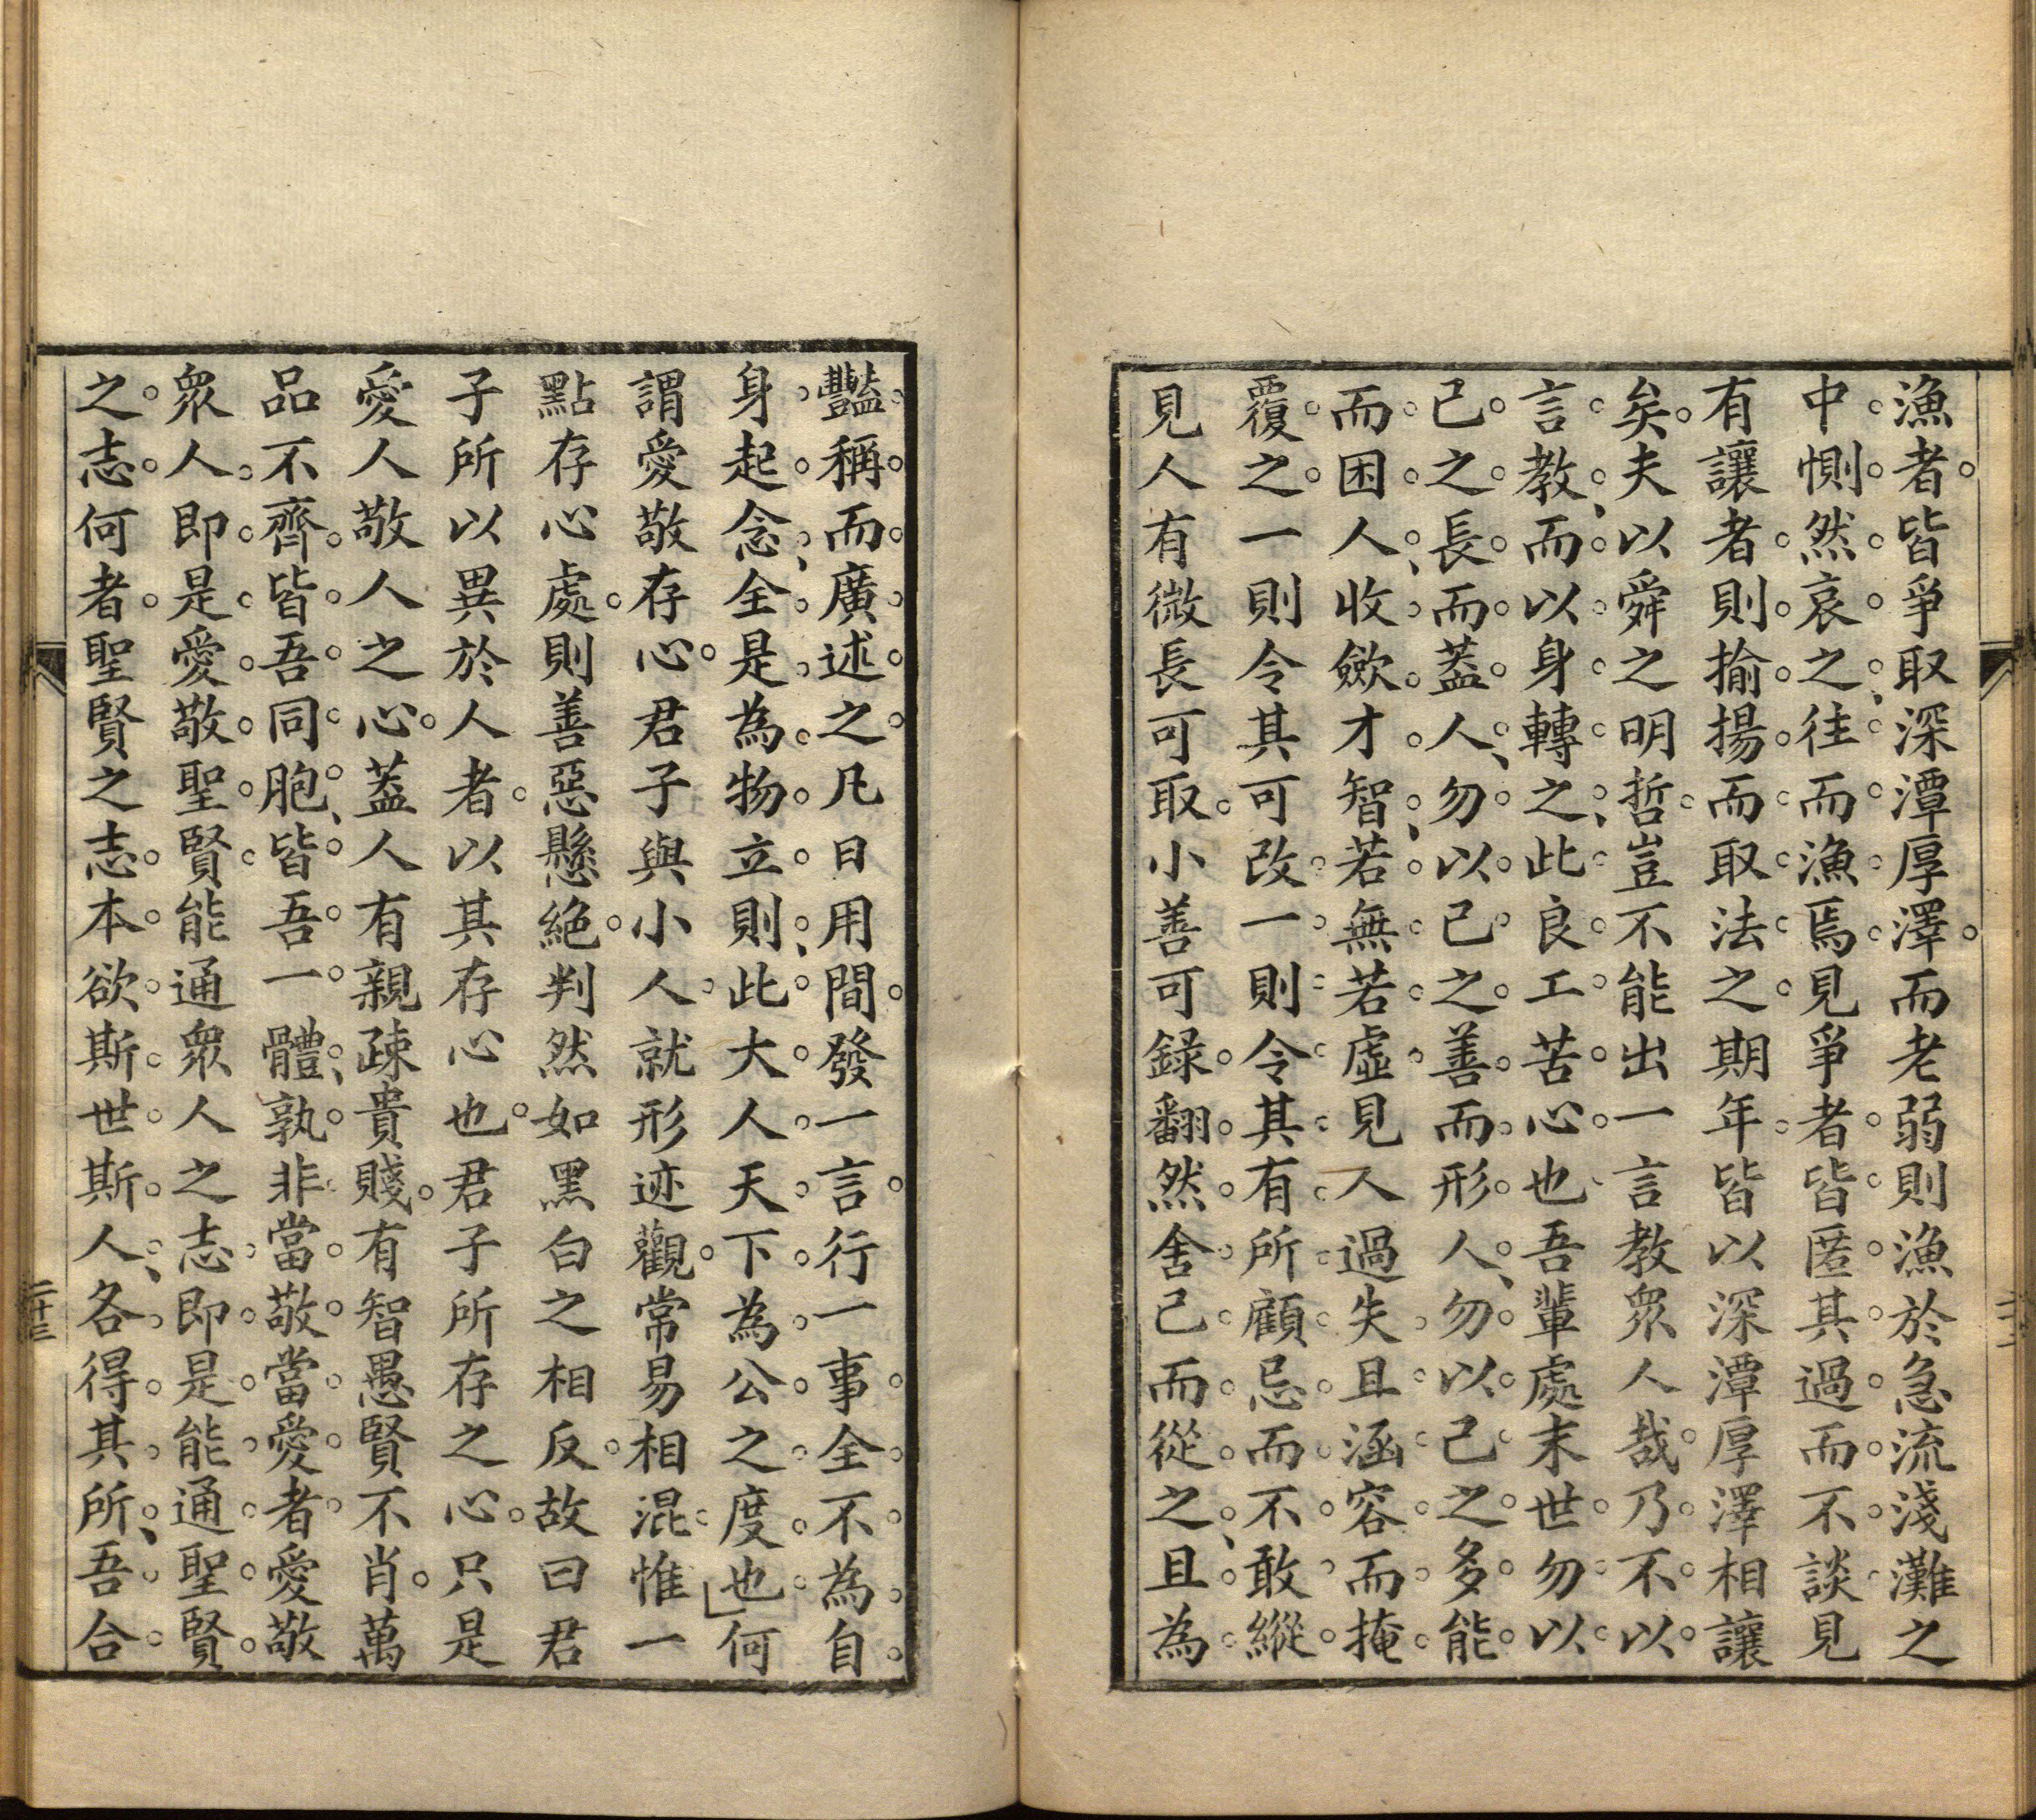 漁者皆爭取深潭厚澤而老弱則漁於急流淺灘之
中惻然哀之往而漁焉見爭者皆匿其過而不談見
有讓者則揄揚而取法之期年皆以深潭厚澤相讓
矣夫以舜之明哲豈不能出一言教眾人哉乃不以
言教而以身轉之此良工苦心也吾輩處末世勿以
己之長而蓋人勿以己之善而形人勿以己之多能
而困人收歛才智若無若虛見人過失且涵容而掩
覆之一則令其可改一則令其有所顧忌而不敢縱
見人有微長可取小善可錄翻然舍己而從之且為
豔稱而廣述之凡日用間發一言行一事全不為自
身起念全是為物立則此大人天下為公之度也何
謂愛敬存心君子與小人就形迹觀常易相混惟一
點存心處則善惡懸絕判然如黑白之相反故曰君
子所以異於人者以其存心也君子所存之心只是
愛人敬人之心蓋人有親疎貴賤有智愚賢不肖萬
品不齊皆吾同胞皆吾一體孰非當敬當愛者愛敬
眾人即是愛敬聖賢能通眾人之志即是能通聖賢
之志何者聖賢之志本欲斯世斯人各得其所吾合
二十三